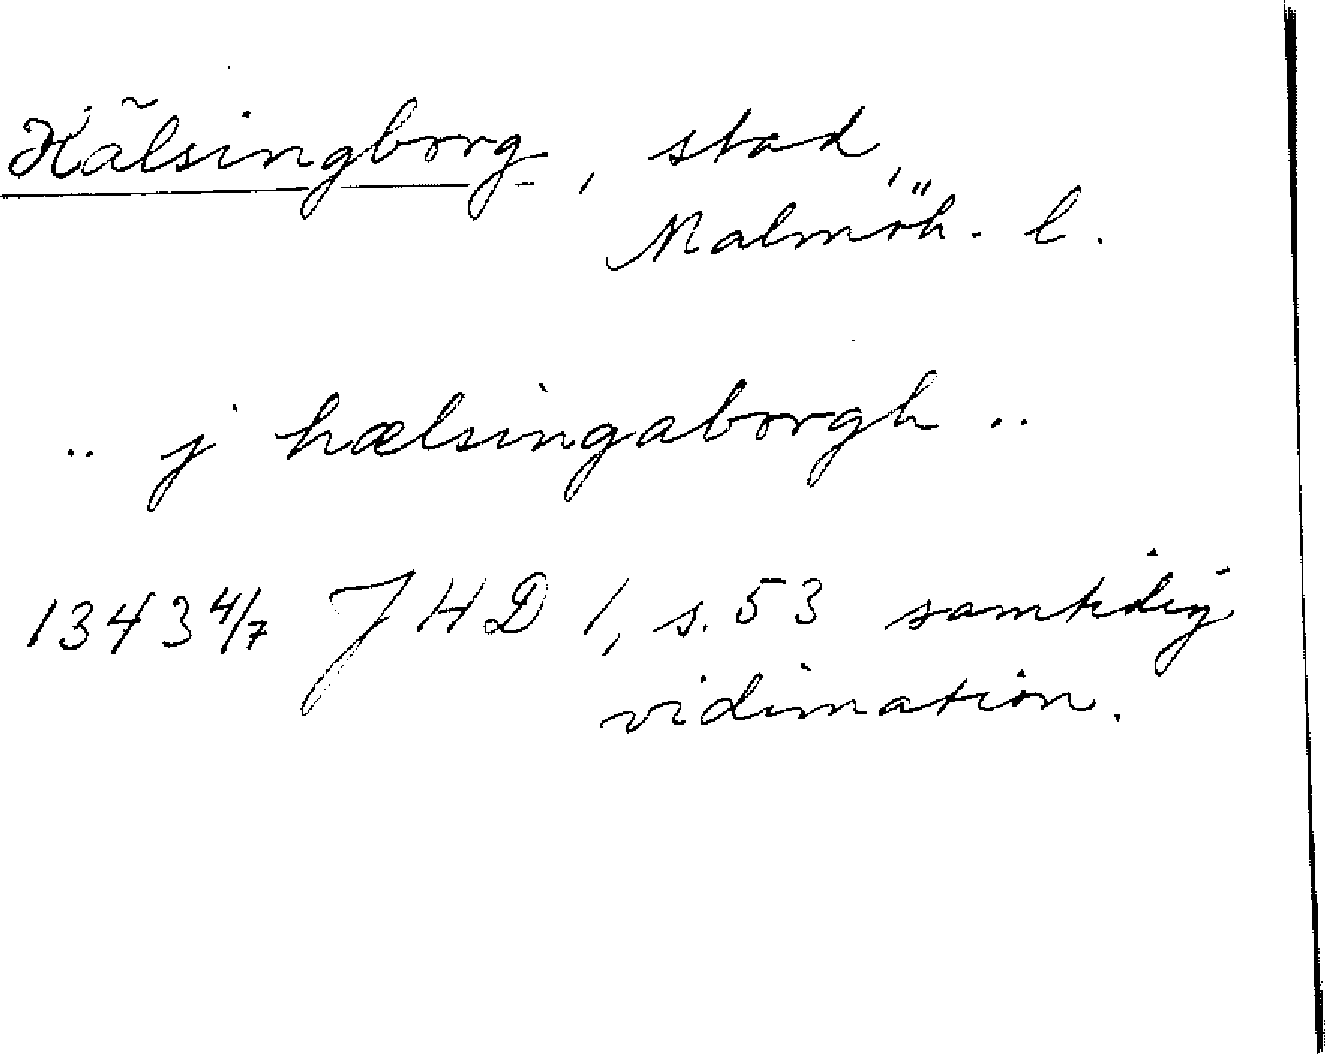 Hälsingborg, stad,
Malmöh. l.
.. j hælsingaborgh ..
1343 4/7 JHD 1, s. 53 samtidig
vidimation.